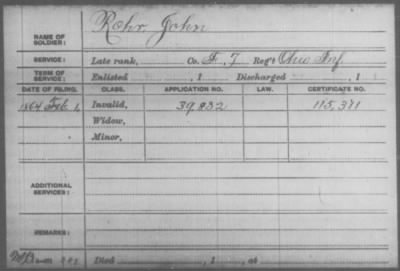 Rohr, John
NAME OF SOLDIER:
SERVICE: Late rank, Co. F, 7 Reg't Ohio Inf
TERM OF SERVICE: Enlisted , 1 Discharged , 1
DATE OF FILING. CLASS. APPLICATION NO. LAW. CERTIFICATE NO.
1864 Feb 1, Invalid, 39,832 115,371
Widow,
Minor,
ADDITIONAL SERVICES:
REMARKS:
Died , 1 , at